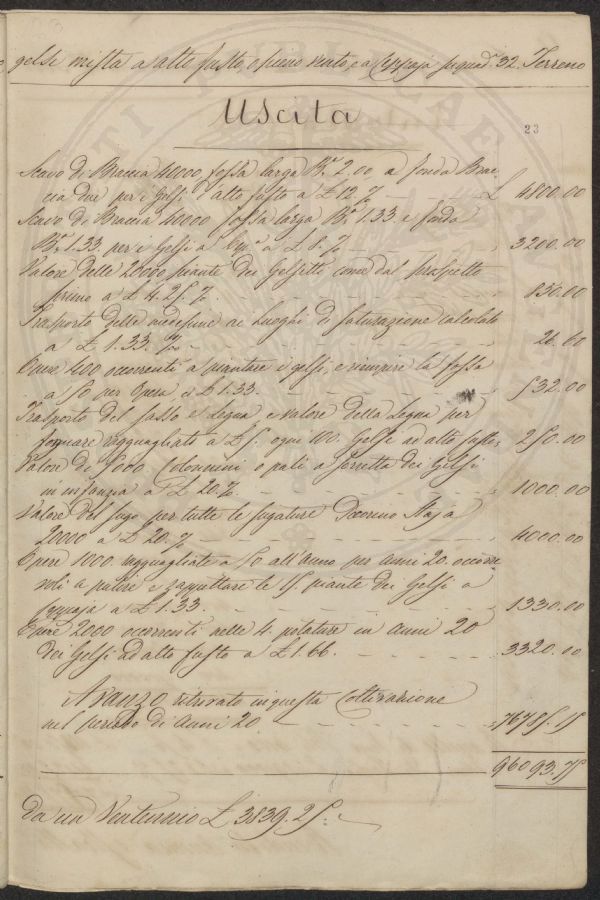 gelsi mista a alto fusto, o pieno vento, e a Ceppaja per quad.i 32. Terreno
Uscita
23
Scavo di Braccia 40000 fossa larga B.a 2.00, a fonda Brac-
cia due per i Gelsi d'alto fusto a £ 12 % £ 4800.00
Scavo di Braccia 40000 fossa larga B.a 1.33 e fonda
B.a 1.33 per i Gelsi a a £ 8. % 3200.00
Valore delle 20000 piante dei Gelsetti come dal prospetto
primo a £ 4.25 % 850.00
Trasporto delle medesime ai Luoghi di calcolato
a £ 1.33. 26.60
Opere 400 occorrenti a piantare i gelsi, e riempire la fossa
a 50 per Opera, a £ 1.33. 532.00
Trasporto del sasso e Legna, e valore della Legna per
ragguagliato a £ 5. ogni 100. Gelsi ad alto fusto 250.00
Valore di 5000 Colonnini, o pali a dei Gelsi
in infanzia a £ 20. % 1000.00
Valore del sugo per tutte le sugature Occorono Staja
20000 a £ 20. % 4000.00
Opere 1000 ragguagliate a 50 all'Anno per anni 20. occorre
voli a pulire e zappettare le piante dei Gelsi a
Ceppaja a £ 1.33. 1330.00
Opere 2000 occorrenti nelle 4. potature in Anni 20
dei Gelsi ad alto fusto a £ 1.66. 3320.00
Avanzo ritrovato in questa Coltivazione
nel periodo di Anni 20 76785.15
96093.75
Da un Ventennio £ 3839.25.